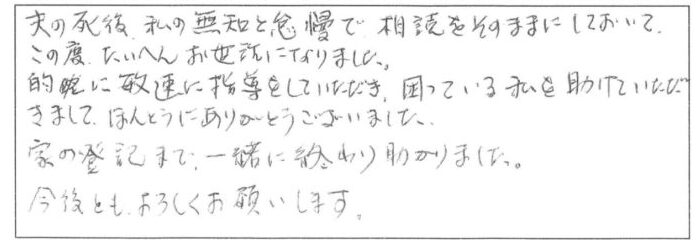 夫の死後、私の無知と怠慢で、相談をそのままにしておいて、
この度、たいへんお世話になりました。
的確に敏速に指導をしていただき、困っている私を助けていただ
きまして、ほんとうにありがとうございました。
家の登記まで、一緒に終わり助かりました。
今後とも、よろしくお願いします。